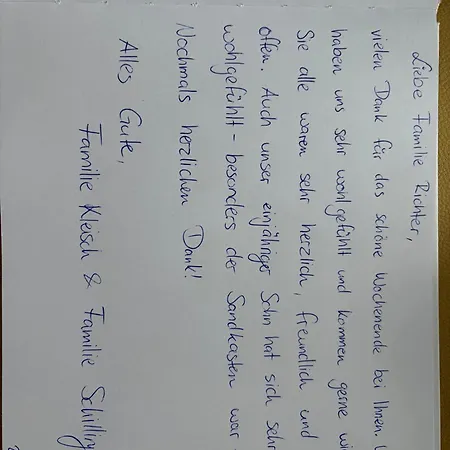 Liebe Familie Richter,
vielen Dank für das schöne Wochenende bei Ihnen.
haben uns sehr wohlgefühlt und kommen gerne
Sie alle waren sehr herzlich, freundlich und
offen. Auch unser einjähriger Sohn hat sich sehr
wohlgefühlt - besonders der Sandkasten war
Nochmals herzlichen Dank!
Alles Gute,
Familie Kleisch & Familie Schilling